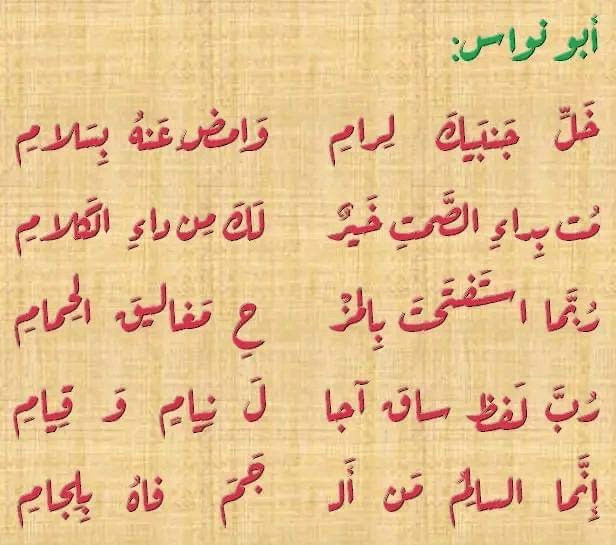 أبو نواس:
خَلِّ جَنبَيكَ لِرامِ وَاِمضِ عَنهُ بِسَلامِ
مُت بِداءِ الصَّمتِ خَيرٌ لَكَ مِن داءِ الكَلامِ
رُبَّما اِستَفتَحتَ بِالمَزْ حِ مَغاليقَ الحِمامِ
رُبَّ لَفظٍ ساقَ آجا لَ نِيامٍ وَ قِيامِ
إِنَّما السالِمُ مَن أَلـ جَمَ فاهُ بِلِجامِ